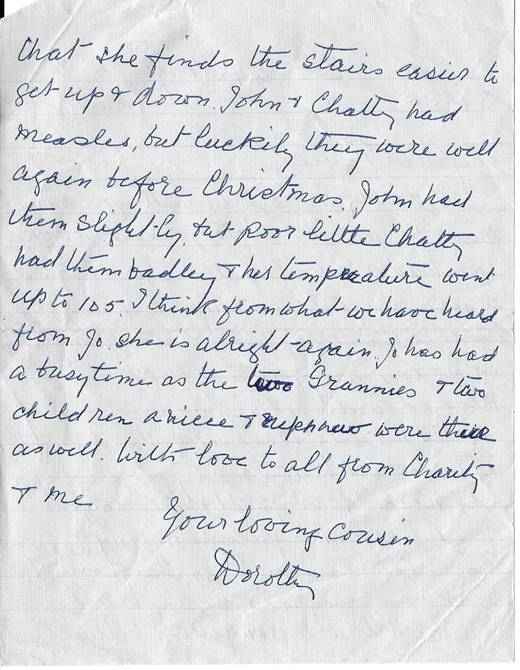 that she finds the stairs easier to
get up & down. John & Chatty had
measles, but luckily they were well
again before Christmas. John had
them slightly, but poor little Chatty
had them badley & her temperature went
up to 105. I think from what we have heard
from Jo. she is alright again. Jo has had
a busy time as the two Grannies & two
children a niece & nephew were there
as well. With love to all from Charity
& me
Your loving cousin
Dorothy